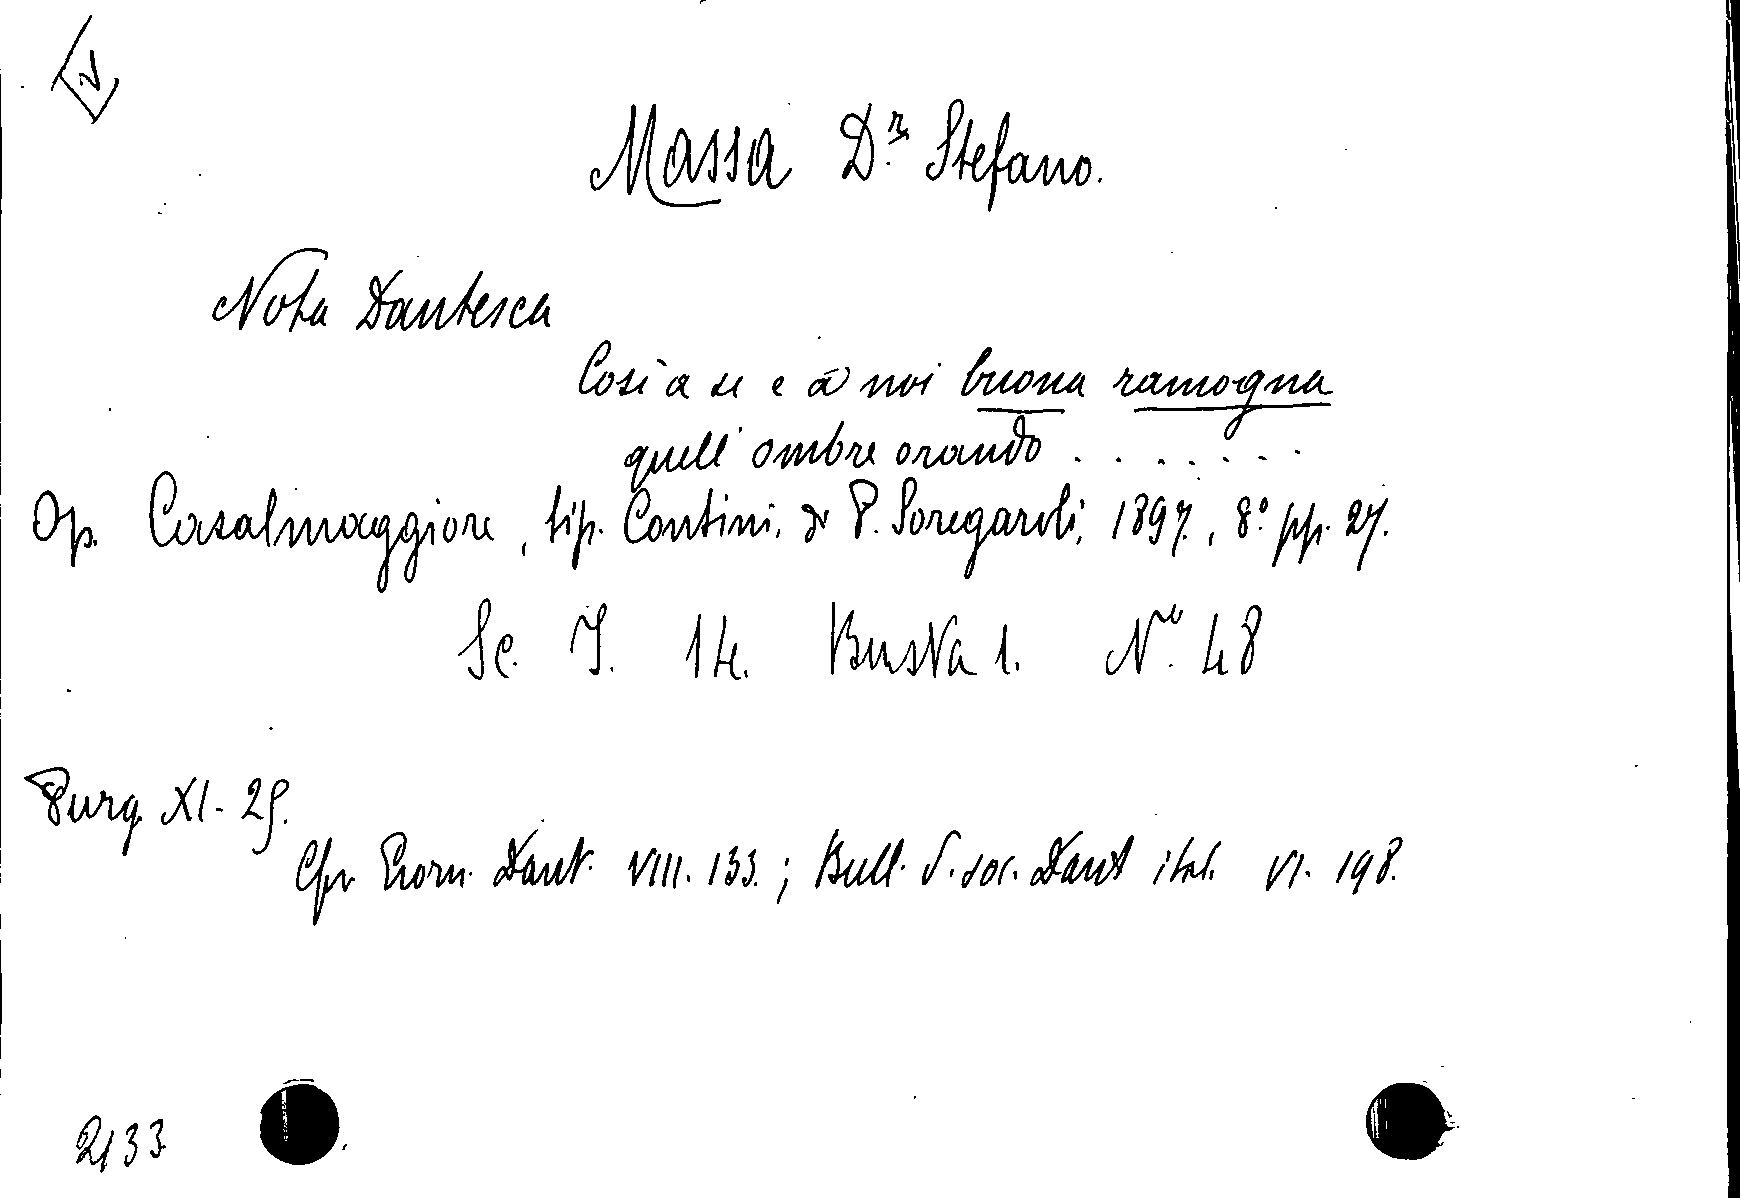 V
Massa D.r Stefano.
Nota Dantesca
Cosi a se e a noi buona ramogna
quell'ombre orando . . . . . . .
Op. Casalmaggiore, tip. Contini, di P. Soregaroli, 1897., 8.º pp. 27.
Sc. I. 14. Busta 1. N.º 48
Purg. XI - 25.
Cfr. Giorn. Dant. VIII. 133.; Bull. d. soc. Dant ital. VI. 198.
2133